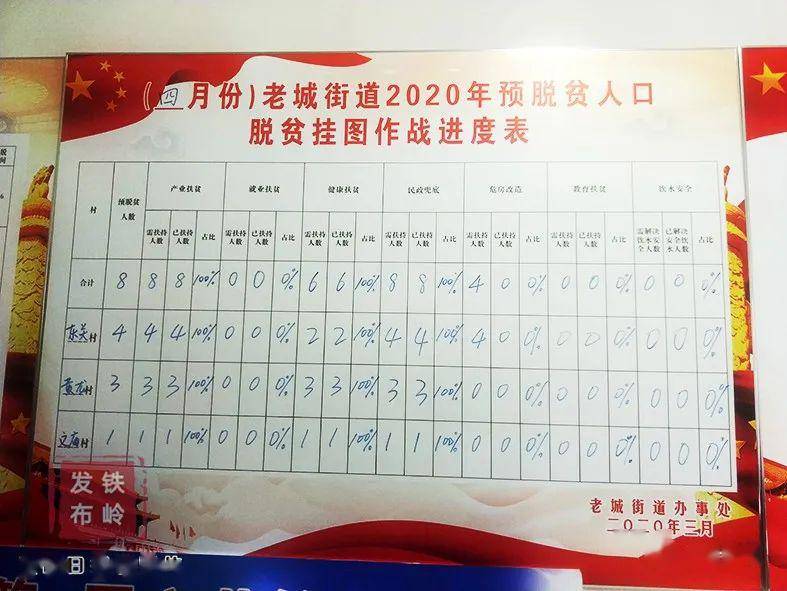 (四月份)老城街道2020年预脱贫人口
脱贫挂图作战进度表
村 预脱贫人数 产业扶贫 就业扶贫 健康扶贫 民政兜底 危房改造 教育扶贫 饮水安全
需扶持人数 已扶持人数 占比 需扶持人数 已扶持人数 占比 需扶持人数 已扶持人数 占比 需扶持人数 已扶持人数 占比 需扶持人数 已扶持人数 占比 需扶持人数 已扶持人数 占比 需解决饮水安全人数 已解决安全饮水人数 占比
合计 8 8 8 100% 0 0 0% 6 6 100% 8 8 100% 4 0 0% 0 0 0% 0 0 0%
东关村 4 4 4 100% 0 0 0% 2 2 100% 4 4 100% 4 0 0% 0 0 0% 0 0 0%
黄龙村 3 3 3 100% 0 0 0% 3 3 100% 3 3 100% 0 0 0% 0 0 0% 0 0 0%
文庙村 1 1 1 100% 0 0 0% 1 1 100% 1 1 100% 0 0 0% 0 0 0% 0 0 0%
老城街道办事处
二〇二〇年三月
铁岭
发布